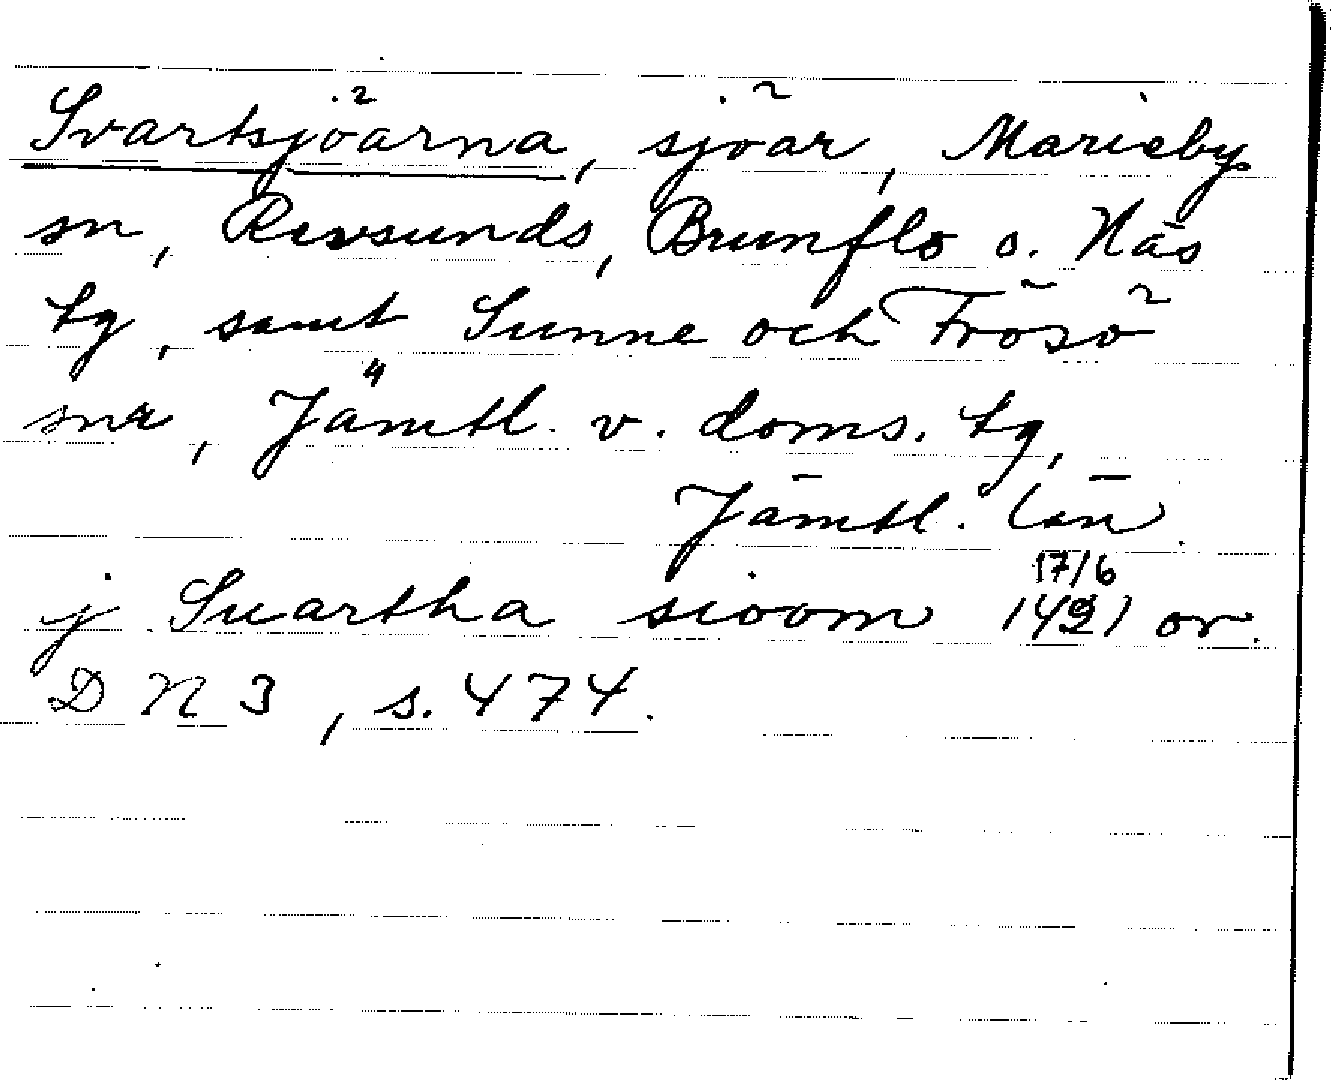 Svartsjöarna, sjöar, Marieby
sn, Revsunds, Brunflo o. Näs
tg, samt Sunne och Frösö
snr, Jämtl. v. doms. tg,
Jämtl. län.
17/6
j Suartha sioom 1421 or.
DN 3, s. 474.